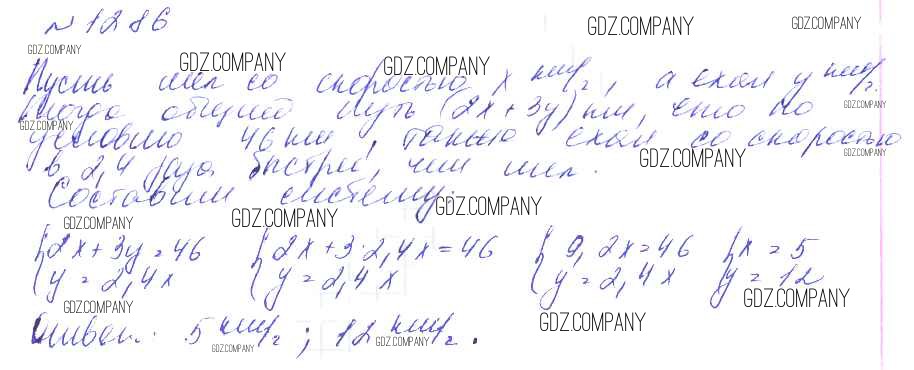 № 1286
GDZ.COMPANY GDZ.COMPANY
GDZ.COMPANY GDZ.COMPANY GDZ.COMPANY
Пусть шел со скоростью x км/ч, а ехал y км/ч.
Тогда общий путь (2x+3y) км, что по
GDZ.COMPANY
GDZ.COMPANY
условию 46 км, также ехал со скоростью
GDZ.COMPANY GDZ.COMPANY
в 2,4 раза быстрей, чем шел.
Составим систему:
GDZ.COMPANY GDZ.COMPANY GDZ.COMPANY
{2x+3y=46 {2x+3·2,4x=46 {9,2x=46 {x=5
{y=2,4x {y=2,4x {y=2,4x {y=12
GDZ.COMPANY GDZ.COMPANY
Ответ: 5 км/ч; 12 км/ч.
GDZ.COMPANY GDZ.COMPANY GDZ.COMPANY